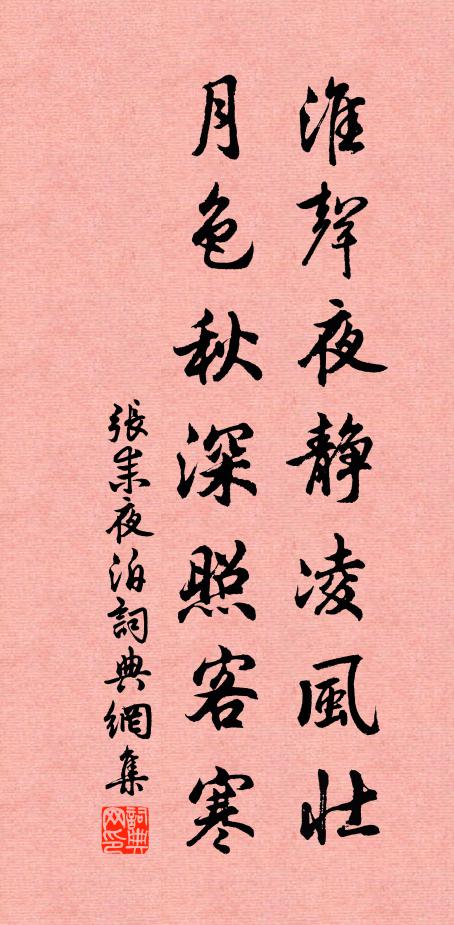 淮聲夜静凌風壮
月色秋深照客寒
張耒夜泊詞典網集
詞典网印